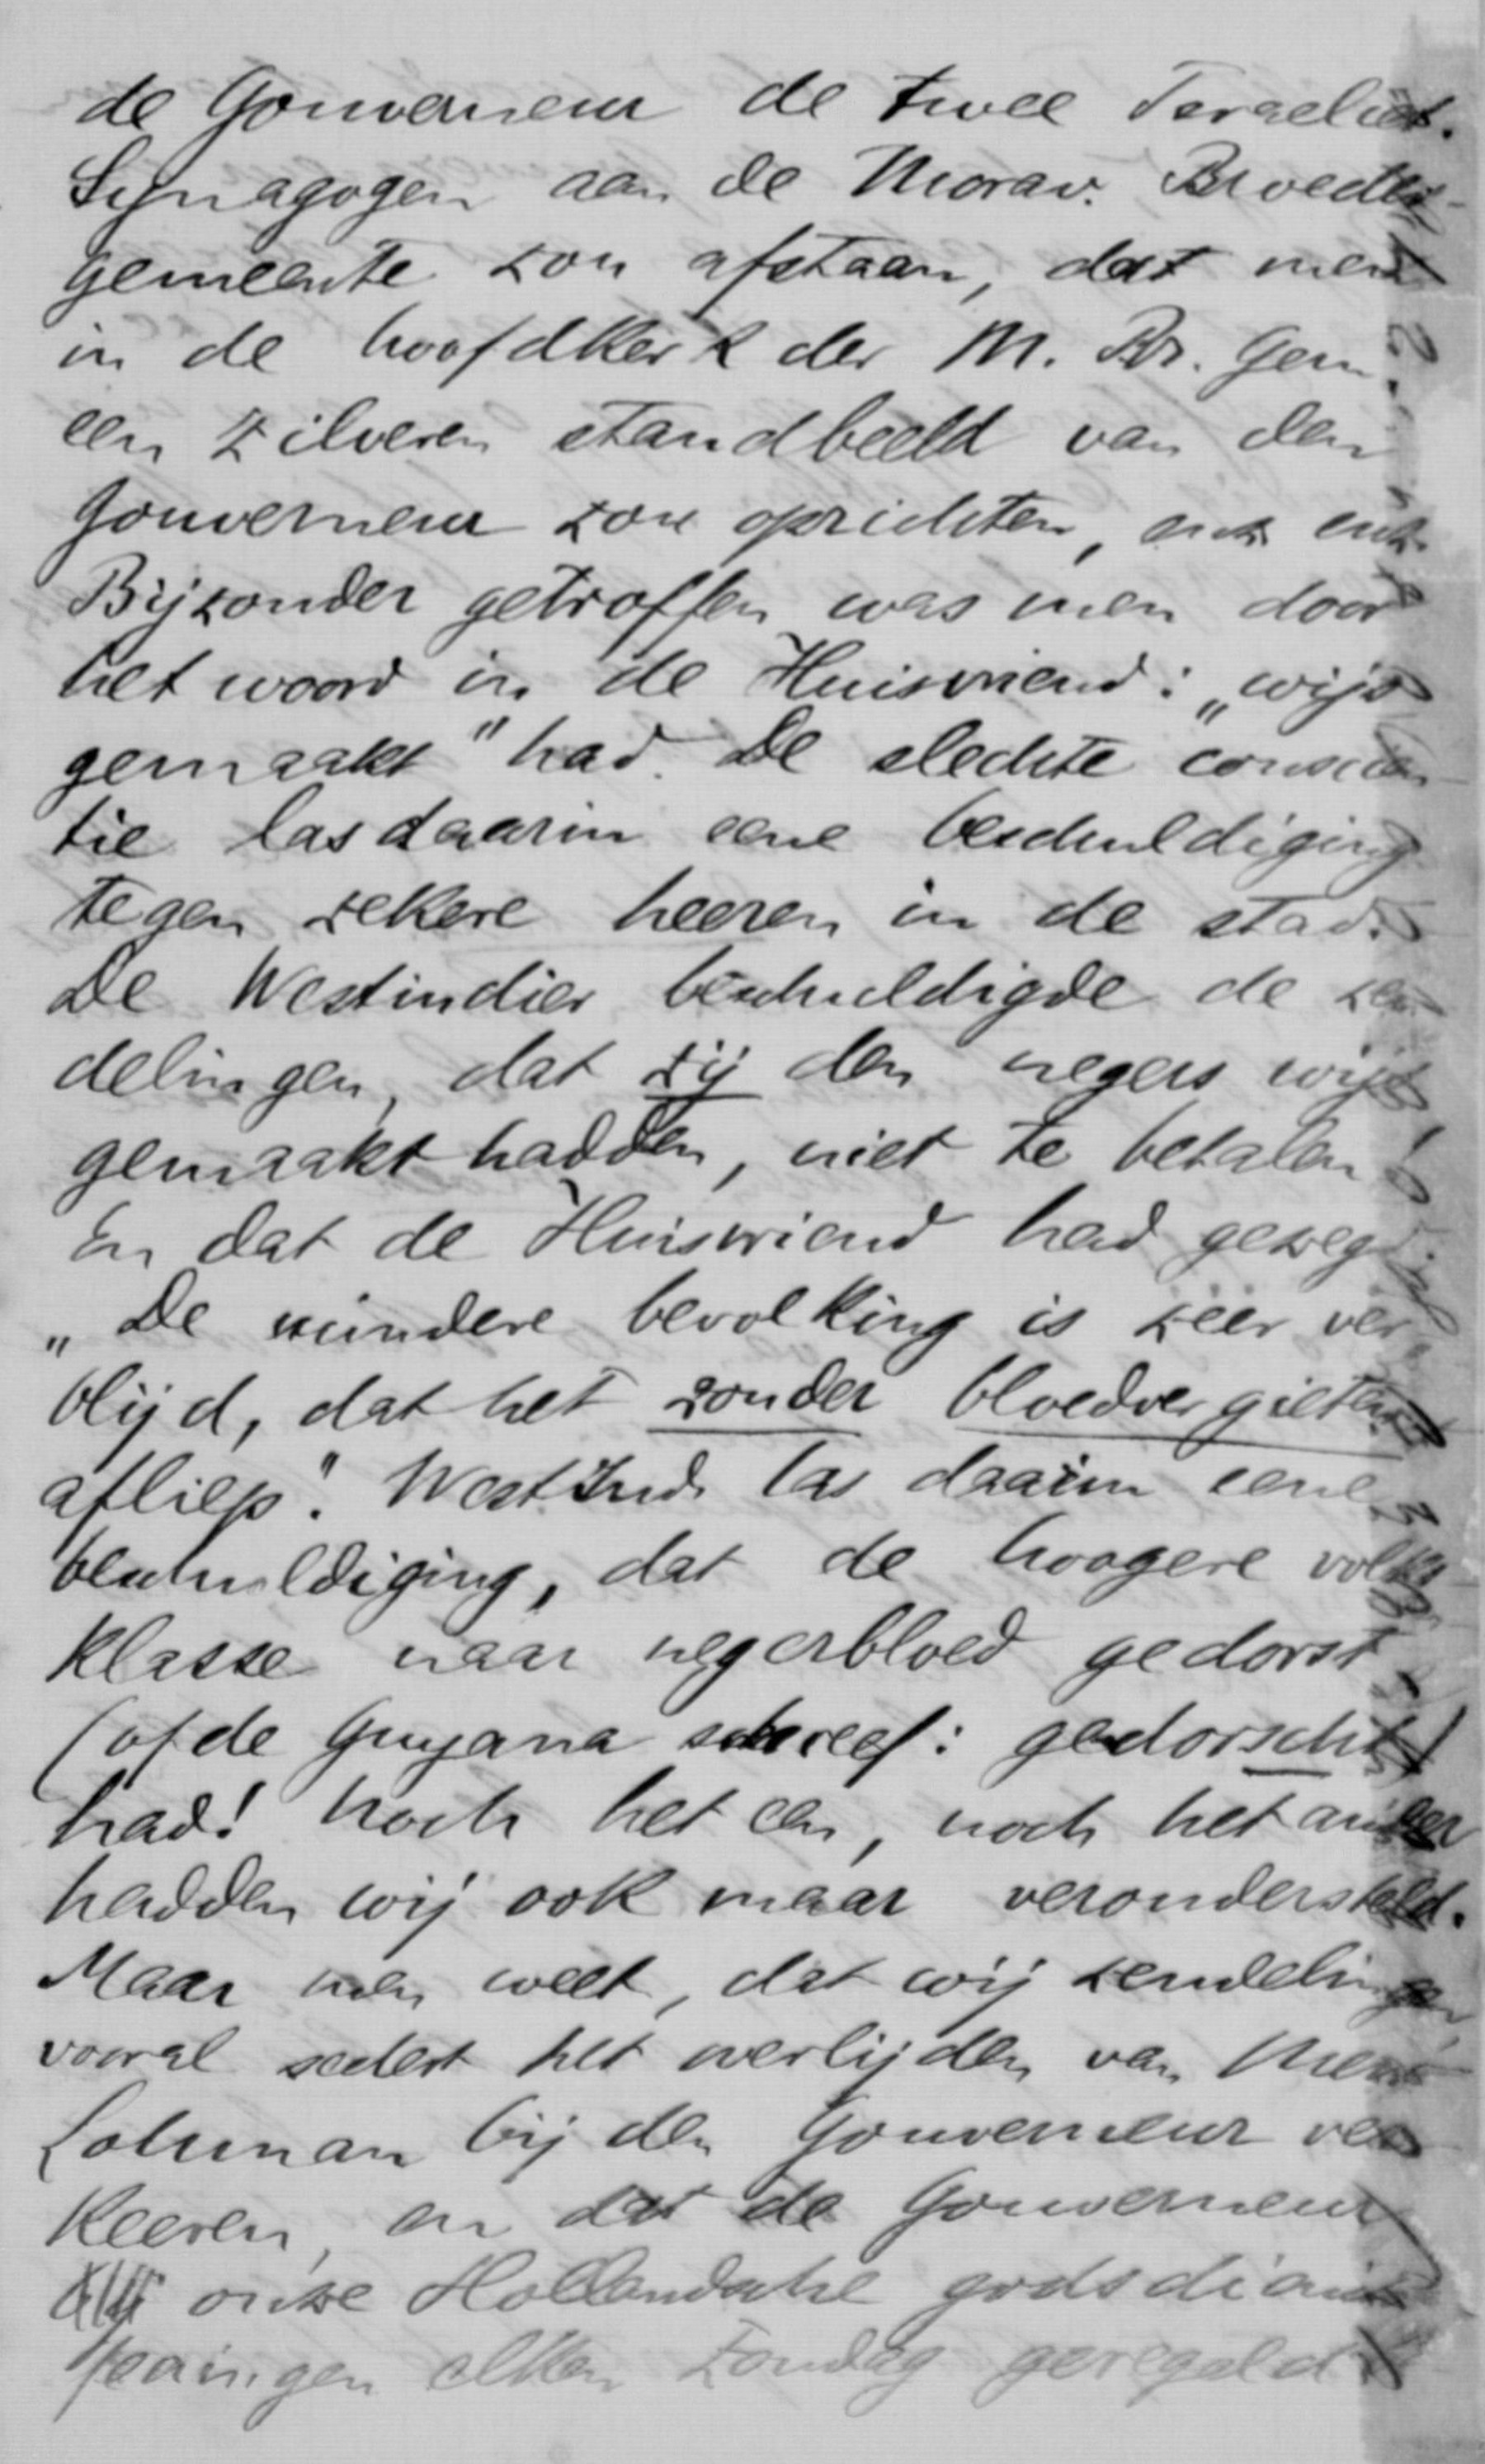 de Gouverneur de twee Israeliet.
Synagogen aan de Morav. Broeder-
gemeente zou afstaan, dat men
in de hoofdkerk der M. Br. Gem.
een zilveren standbeeld van den
Gouverneur zou oprichten, enz. enz.
Bijzonder getroffen was men door
het woord in de Huisvriend: „wijs
gemaakt" had. De slechte conscien-
tie las daarin eene beschuldiging
tegen zekere heeren in de stad.
De Westindiër beschuldigde de zen-
delingen, dat zij den negers wijs
gemaakt hadden, niet te betalen!
En dat de Huisvriend had gezegd:
„De mindere bevolking is zéér ver-
blijd, dat het zonder bloedvergieten
afliep". Westind. las daarin eene
beschuldiging, dat de hoogere volks-
klasse naar negerbloed gedorst
(of de Guyana schreef: gedorscht)
had! Noch het een, noch het ander
hadden wij ook maar verondersteld.
Maar men weet, dat wij zendelingen,
vooral sedert het overlijden van Mevr.
Lohman bij den Gouverneur ver-
keeren, en dat de Gouverneur
onze Hollandsche godsdienst-
oefeningen elken Zondag geregeld